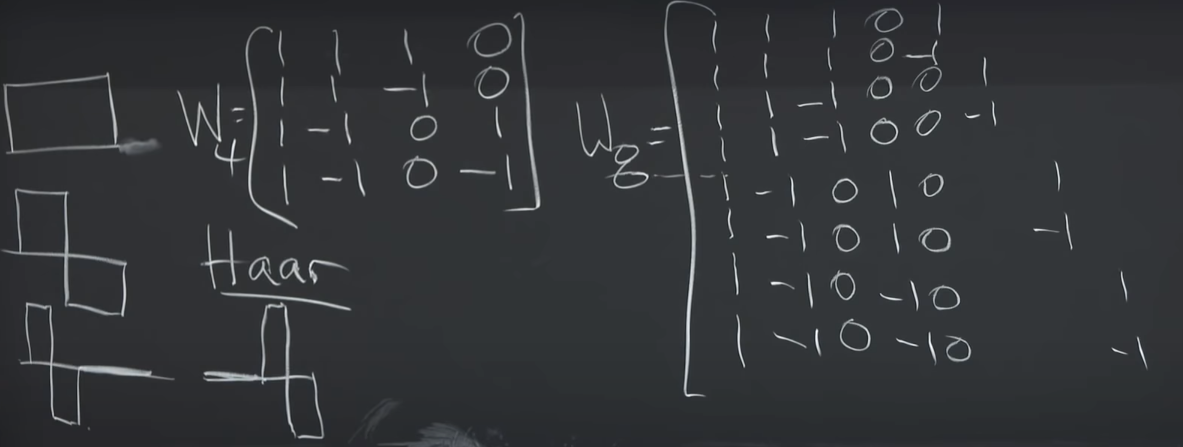 W₄ = [ 1 1 1 0
1 1 -1 0
1 -1 0 1
1 -1 0 -1 ]
Haar
W₈ = [ 1 1 1 0 1
1 1 1 0 -1
1 1 -1 0 0 1
1 1 -1 0 0 -1
1 -1 0 1 0 1
1 -1 0 1 0 -1
1 -1 0 -1 0 1
1 -1 0 -1 0 -1